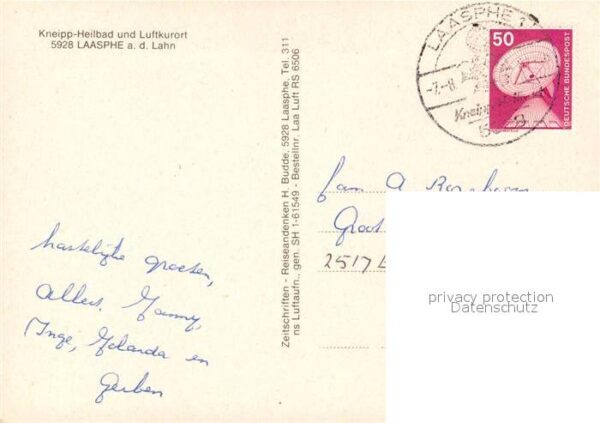 Kneipp-Heilbad und Luftkurort
5928 LAASPHE a. d. Lahn
Zeitschriften - Reiseandenken H. Budde, 5928 Laasphe, Tel. 311
ns Luftaufn., gen. SH 1-61549 - Bestellnr. Laa Luft RS 6506
LAASPHE 1
-7.-8.
Kneipp
50
DEUTSCHE BUNDESPOST
fam A
Groot
2517
hartelijke groeten,
Albert,
Inge, Jolanda en
Gerben
privacy protection
Datenschutz